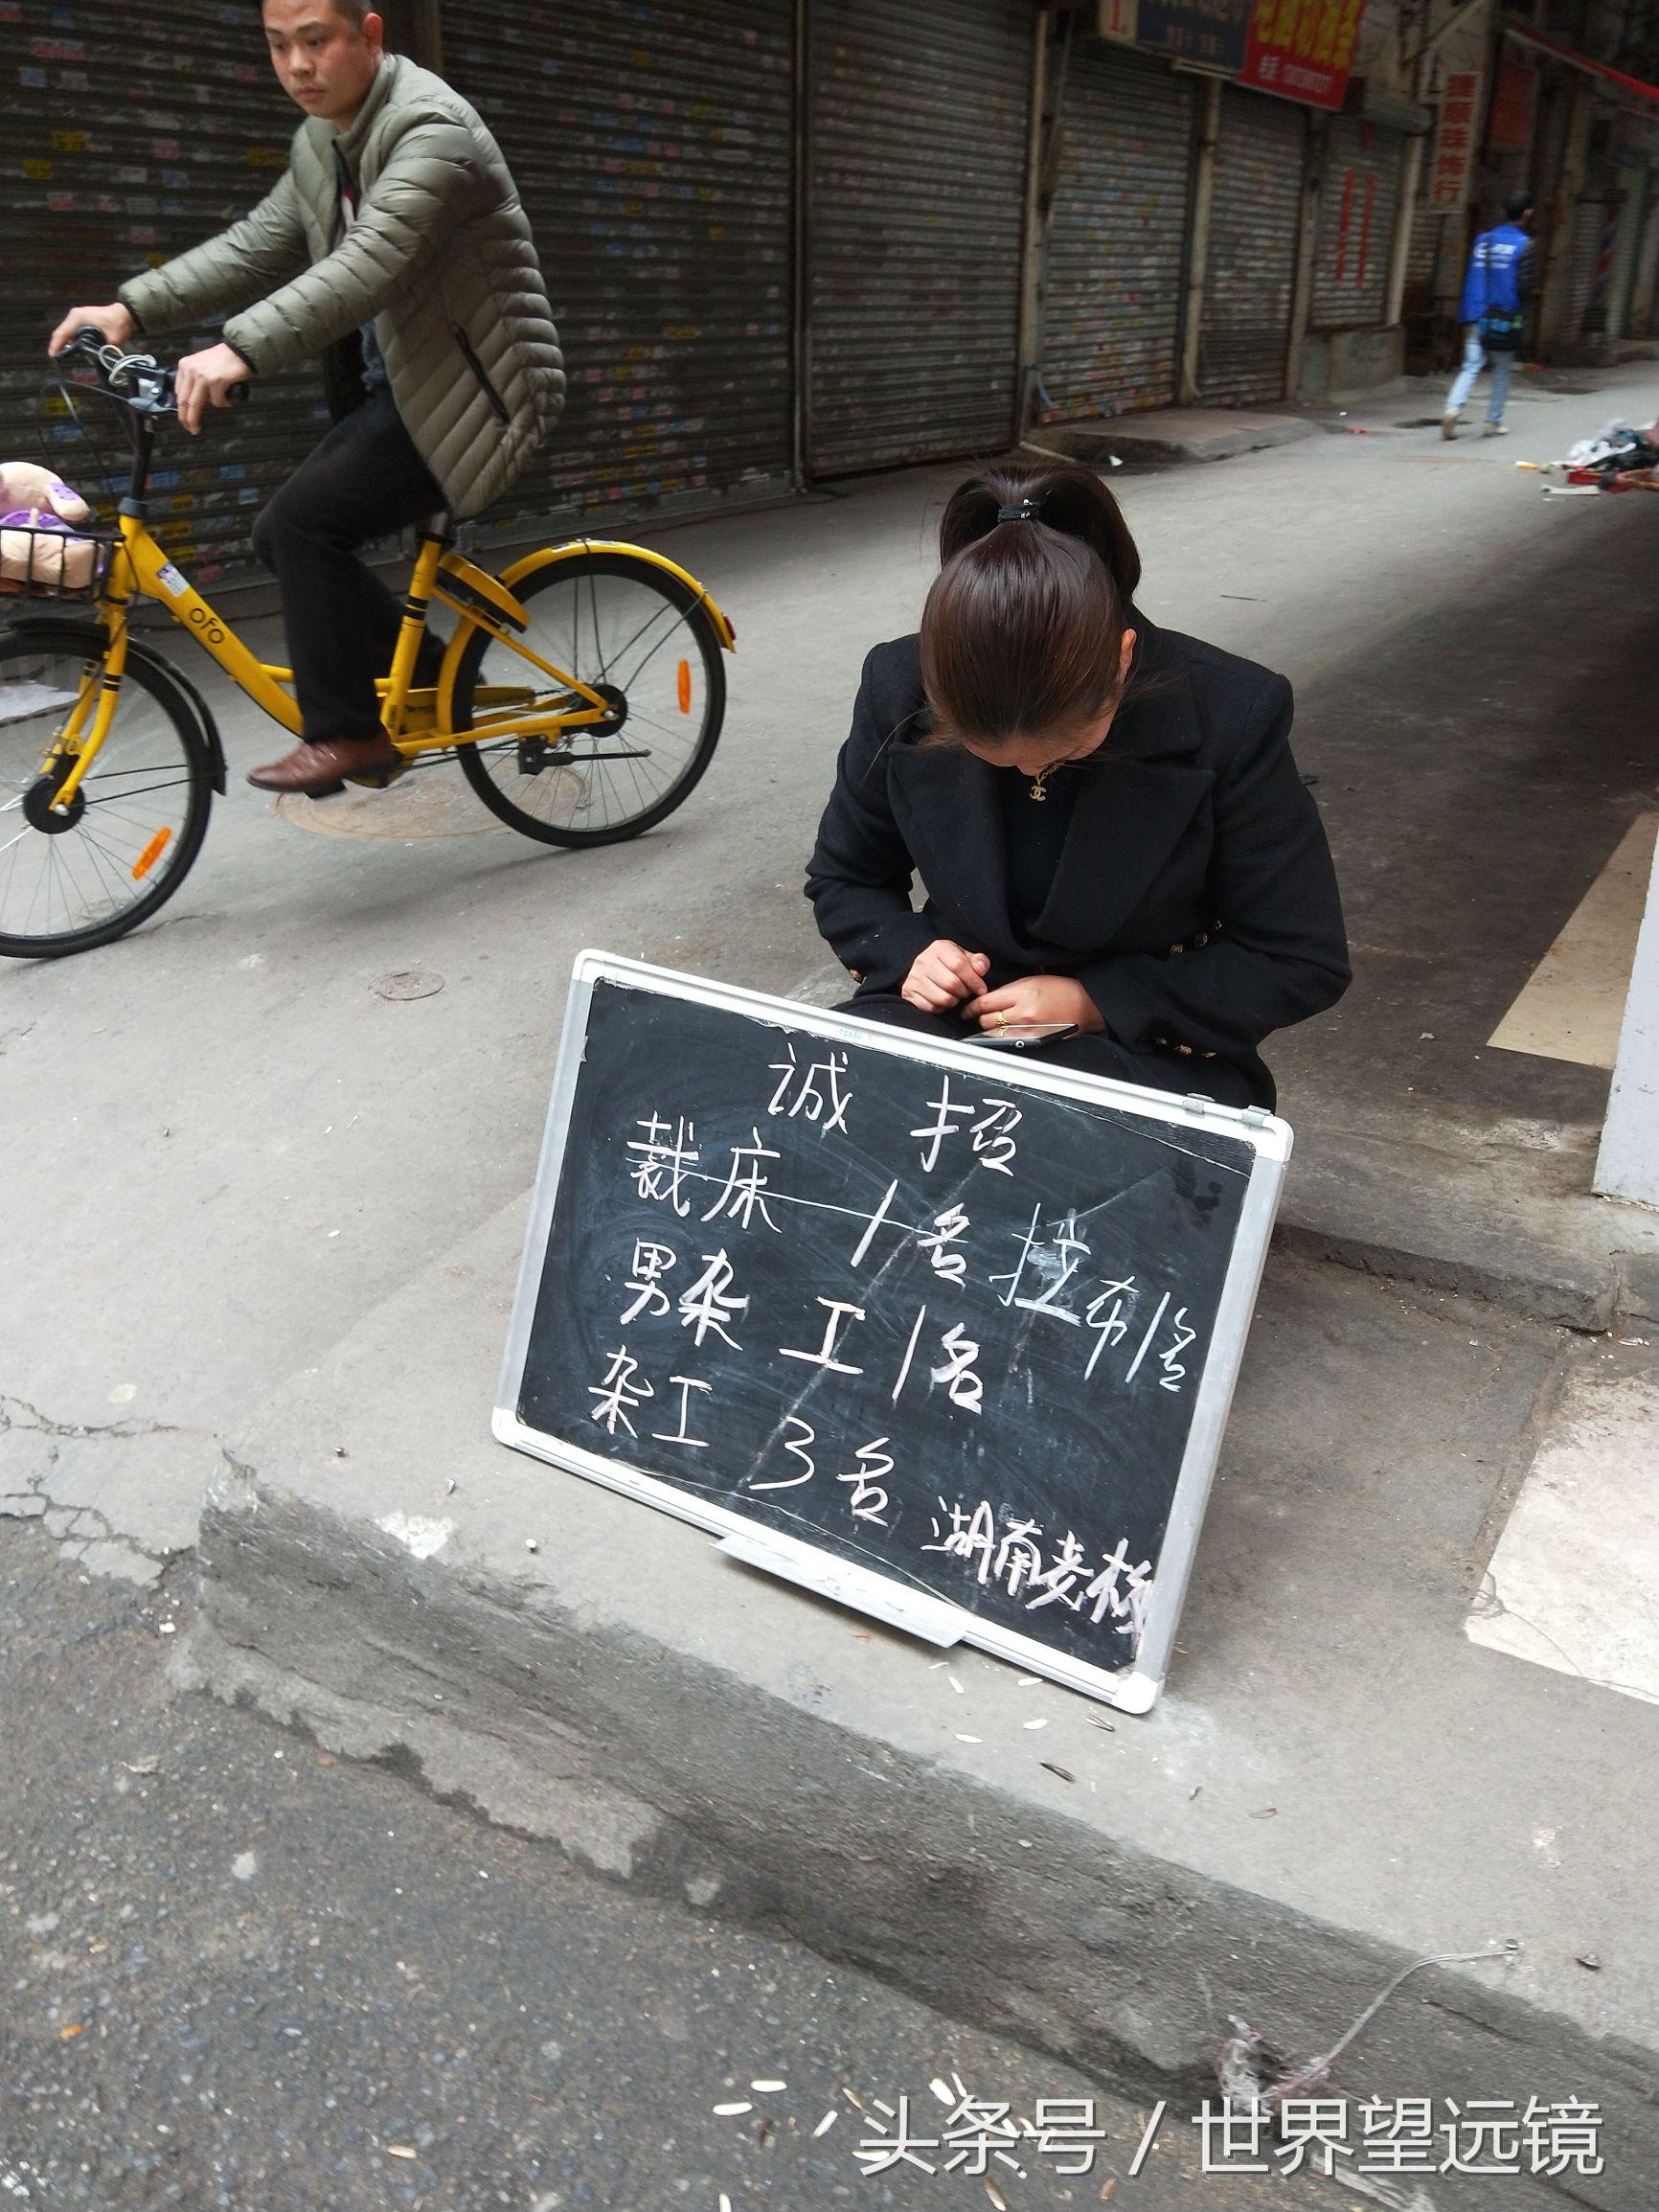 捷顺珠饰行
ofo
诚招
裁床1名 拉布1名
男杂工1名
杂工3名
湖南老板
头条号 / 世界望远镜